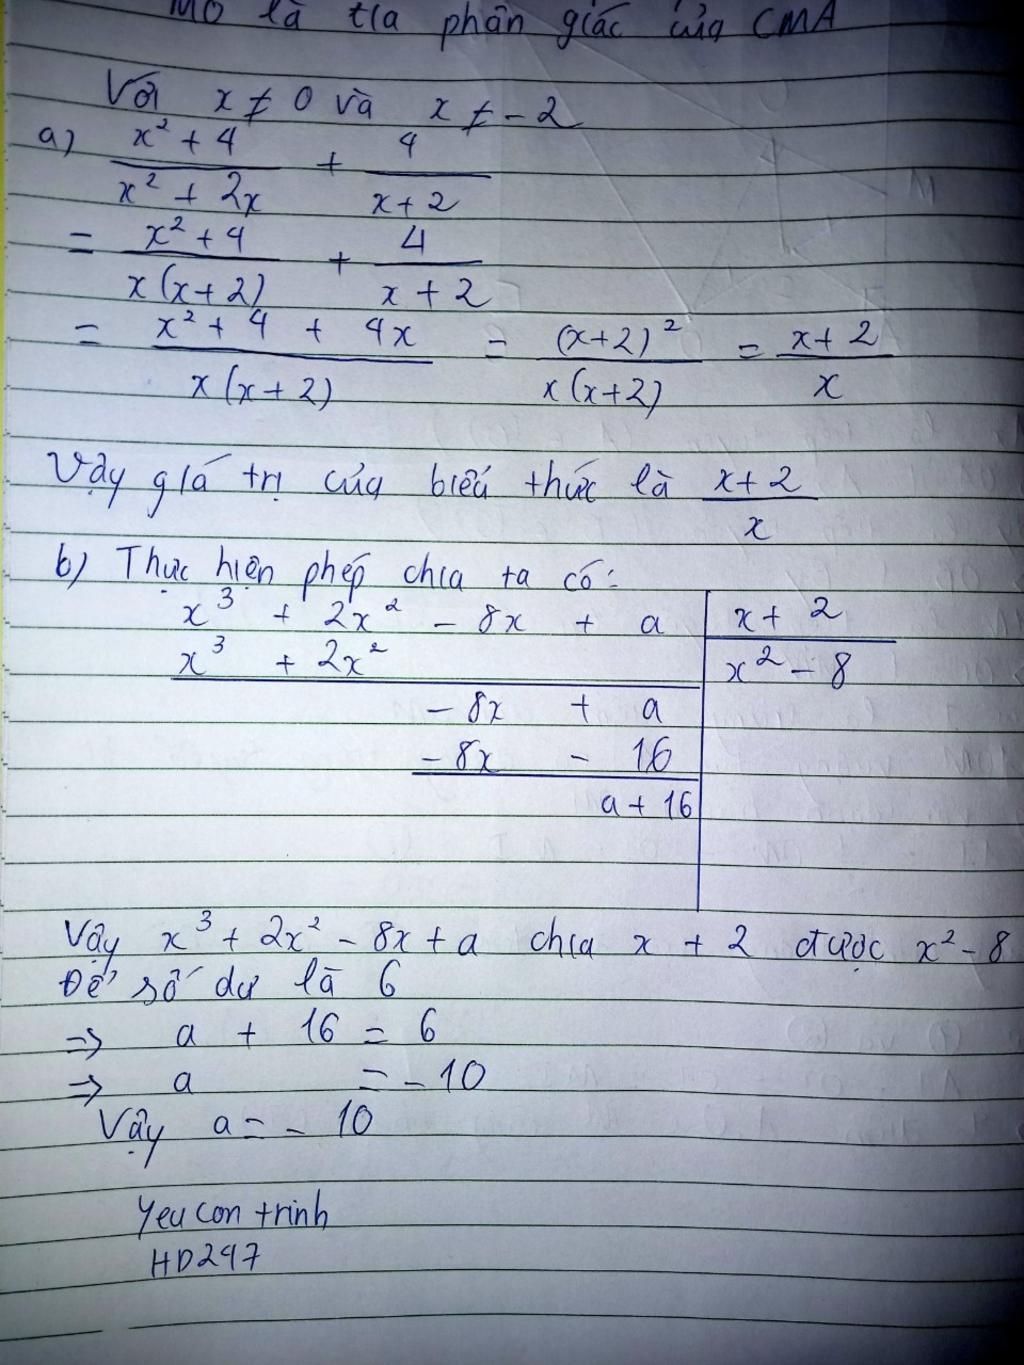 MO là tia phân giác của CMA
Với x ≠ 0 và x ≠ - 2
a) (x² + 4)/(x² + 2x) + 4/(x + 2)
= (x² + 4)/(x(x + 2)) + 4/(x + 2)
= (x² + 4 + 4x)/(x(x + 2)) = (x+2)²/(x(x+2)) = (x+2)/x
Vậy giá trị của biểu thức là (x+2)/x
b) Thực hiện phép chia ta có:
x³ + 2x² - 8x + a | x + 2
x³ + 2x² | x² - 8
- 8x + a
- 8x - 16
a + 16
Vậy x³ + 2x² - 8x + a chia x + 2 được x² - 8
Để số dư là 6
=> a + 16 = 6
=> a = - 10
Vậy a = - 10
Yeu con trinh
HD247